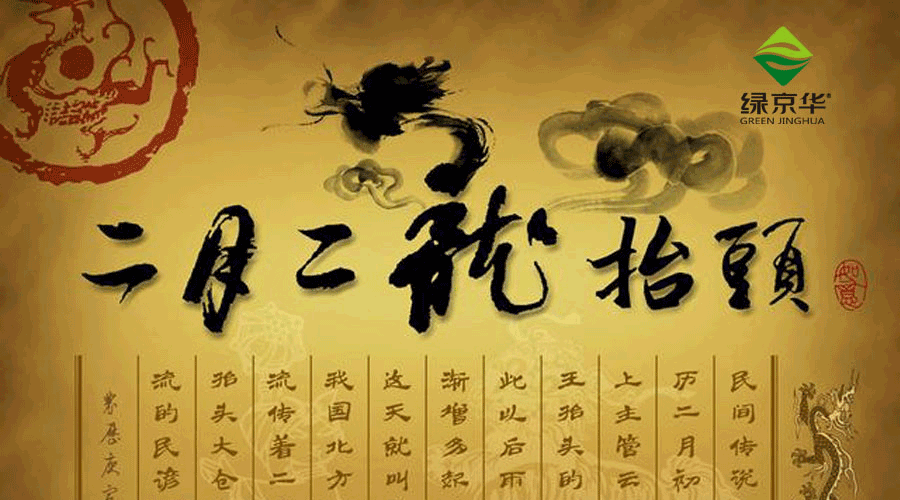 绿京华®
GREEN JINGHUA
二月二龍抬頭
如意
民间传说
历二月初
上主管云
王抬头的
此以后雨
渐增多起
这天就叫
我国北方
流传着二
抬头大仓
流的民谚